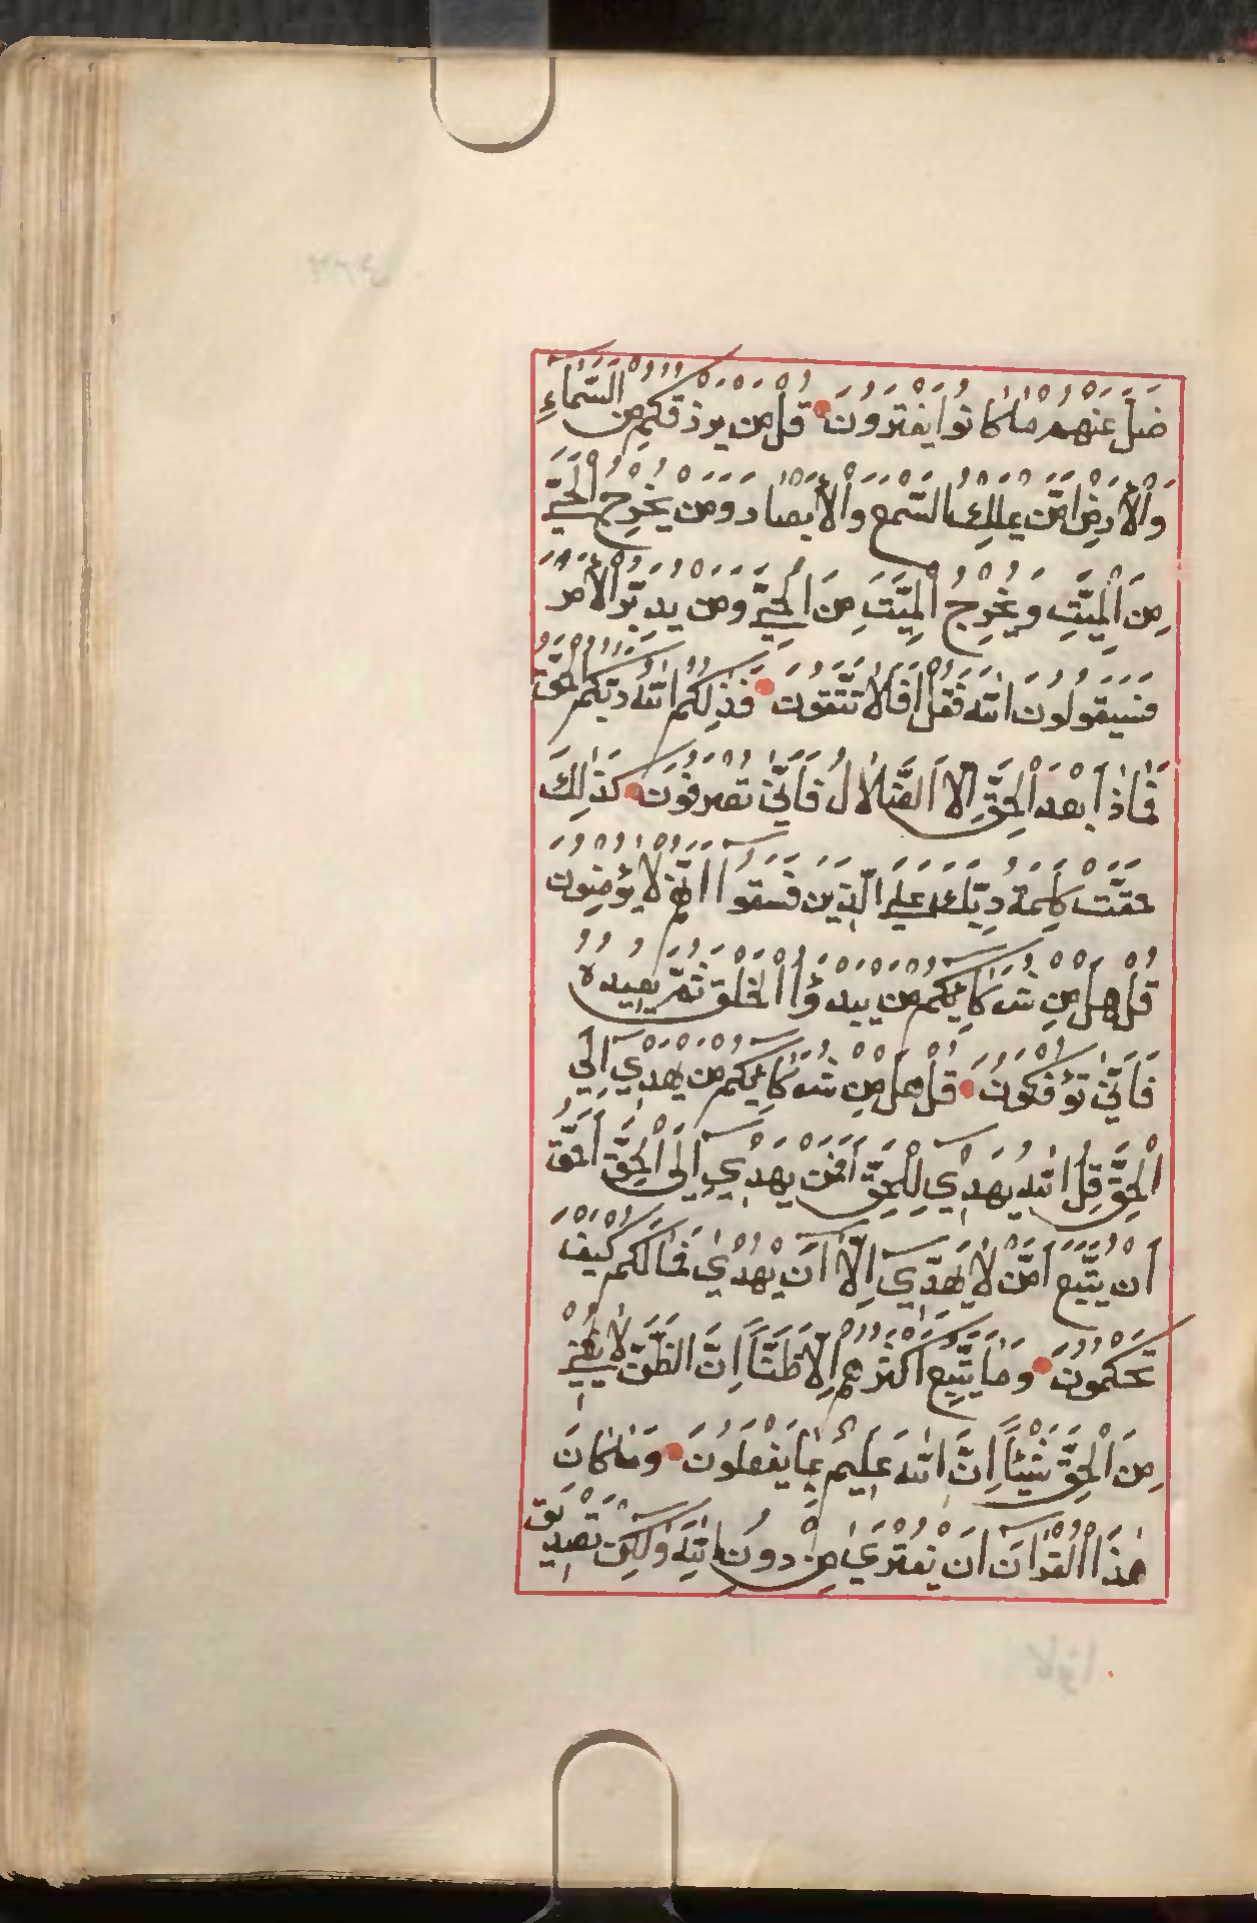 ضَلَّ عَنْهُمْ مَا كَانُوا يَفْتَرُونَ قُلْ مَنْ يَرْزُقُكُمْ مِنَ السَّمَاءِ
وَالْأَرْضِ أَمَّنْ يَمْلِكُ السَّمْعَ وَالْأَبْصَارَ وَمَنْ يُخْرِجُ الْحَيَّ
مِنَ الْمَيِّتِ وَيُخْرِجُ الْمَيِّتَ مِنَ الْحَيِّ وَمَنْ يُدَبِّرُ الْأَمْرَ
فَسَيَقُولُونَ اللَّهُ فَقُلْ أَفَلَا تَتَّقُونَ فَذَلِكُمُ اللَّهُ رَبُّكُمُ الْحَقُّ
فَمَاذَا بَعْدَ الْحَقِّ إِلَّا الضَّلَالُ فَأَنَّى تُصْرَفُونَ كَذَلِكَ
حَقَّتْ كَلِمَةُ رَبِّكَ عَلَى الَّذِينَ فَسَقُوا أَنَّهُمْ لَا يُؤْمِنُونَ
قُلْ هَلْ مِنْ شُرَكَائِكُمْ مَنْ يَبْدَؤُا الْخَلْقَ ثُمَّ يُعِيدُهُ
فَأَنَّى تُؤْفَكُونَ قُلْ هَلْ مِنْ شُرَكَائِكُمْ مَنْ يَهْدِي إِلَى
الْحَقِّ قُلِ اللَّهُ يَهْدِي لِلْحَقِّ أَفَمَنْ يَهْدِي إِلَى الْحَقِّ أَحَقُّ
أَنْ يُتَّبَعَ أَمَّنْ لَا يَهِدِّي إِلَّا أَنْ يُهْدَى فَمَا لَكُمْ كَيْفَ
تَحْكُمُونَ وَمَا يَتَّبِعُ أَكْثَرُهُمْ إِلَّا ظَنًّا إِنَّ الظَّنَّ لَا يُغْنِي
مِنَ الْحَقِّ شَيْئًا إِنَّ اللَّهَ عَلِيمٌ بِمَا يَفْعَلُونَ وَمَا كَانَ
هَذَا الْقُرْآنُ أَنْ يُفْتَرَى مِنْ دُونِ اللَّهِ وَلَكِنْ تَصْدِيقَ